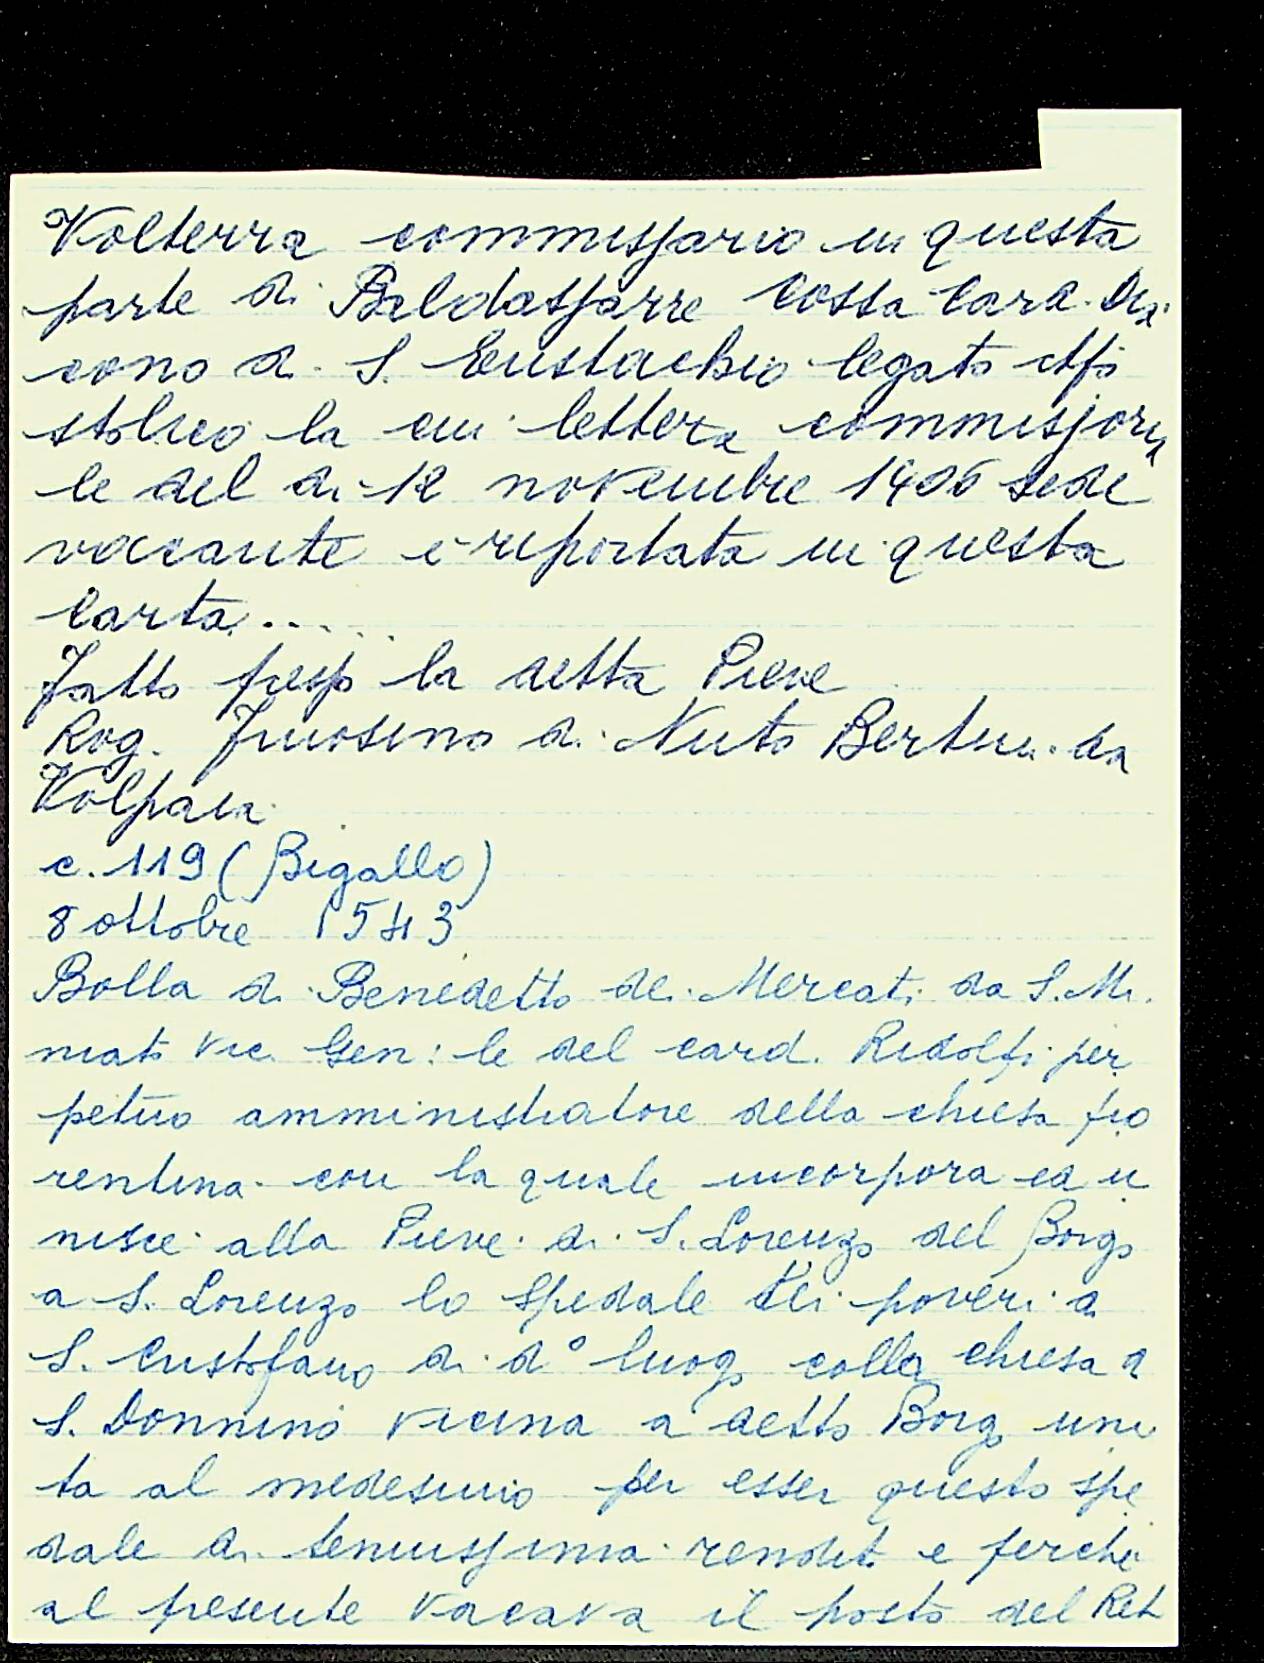 Volterra commissario in questa
parte di Baldassarre Cossa Card. Dia
cono di S. Eustachio legato Apo
stolico la cui lettera commissoria
le del di 12 novembre 1406 sede
vacante è riportata in questa
carta.....
Fatto presso la detta Pieve
Rog. di Nuto Bertini da
Volpaia
c. 119 (Bigallo)
8 ottobre 1543
Bolla di Benedetto de Mercati da S. Mi
niato Vic. Gen:le del card. Ridolfi per
petuo amministratore della chiesa fio
rentina con la quale incorpora ed u
nisce alla Pieve di S. Lorenzo del Borgo
a S. Lorenzo lo Spedale dei poveri di
S. Cristofano di d° luogo colla chiesa di
S. Donnino vicina a detto Borgo uni
ta al medesimo per esser questo spe
dale di tenuissima rendita e perché
al presente vacava il posto del Ret